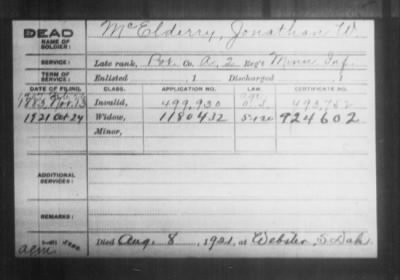 DEAD
NAME OF SOLDIER: McElderry, Jonathan W.
SERVICE: Late rank, Co. A, 2 Reg't Minn Inf.
TERM OF SERVICE: Enlisted , 1 Discharged , 1
DATE OF FILING. CLASS. APPLICATION NO. LAW. CERTIFICATE NO.
1883 Nov. 13 Invalid, 499,930 493,782
1921 Oct 24 Widow, 1180432 924602
Minor,
ADDITIONAL SERVICES:
REMARKS:
Died Aug 8, 1921, at Webster, S. Dak.